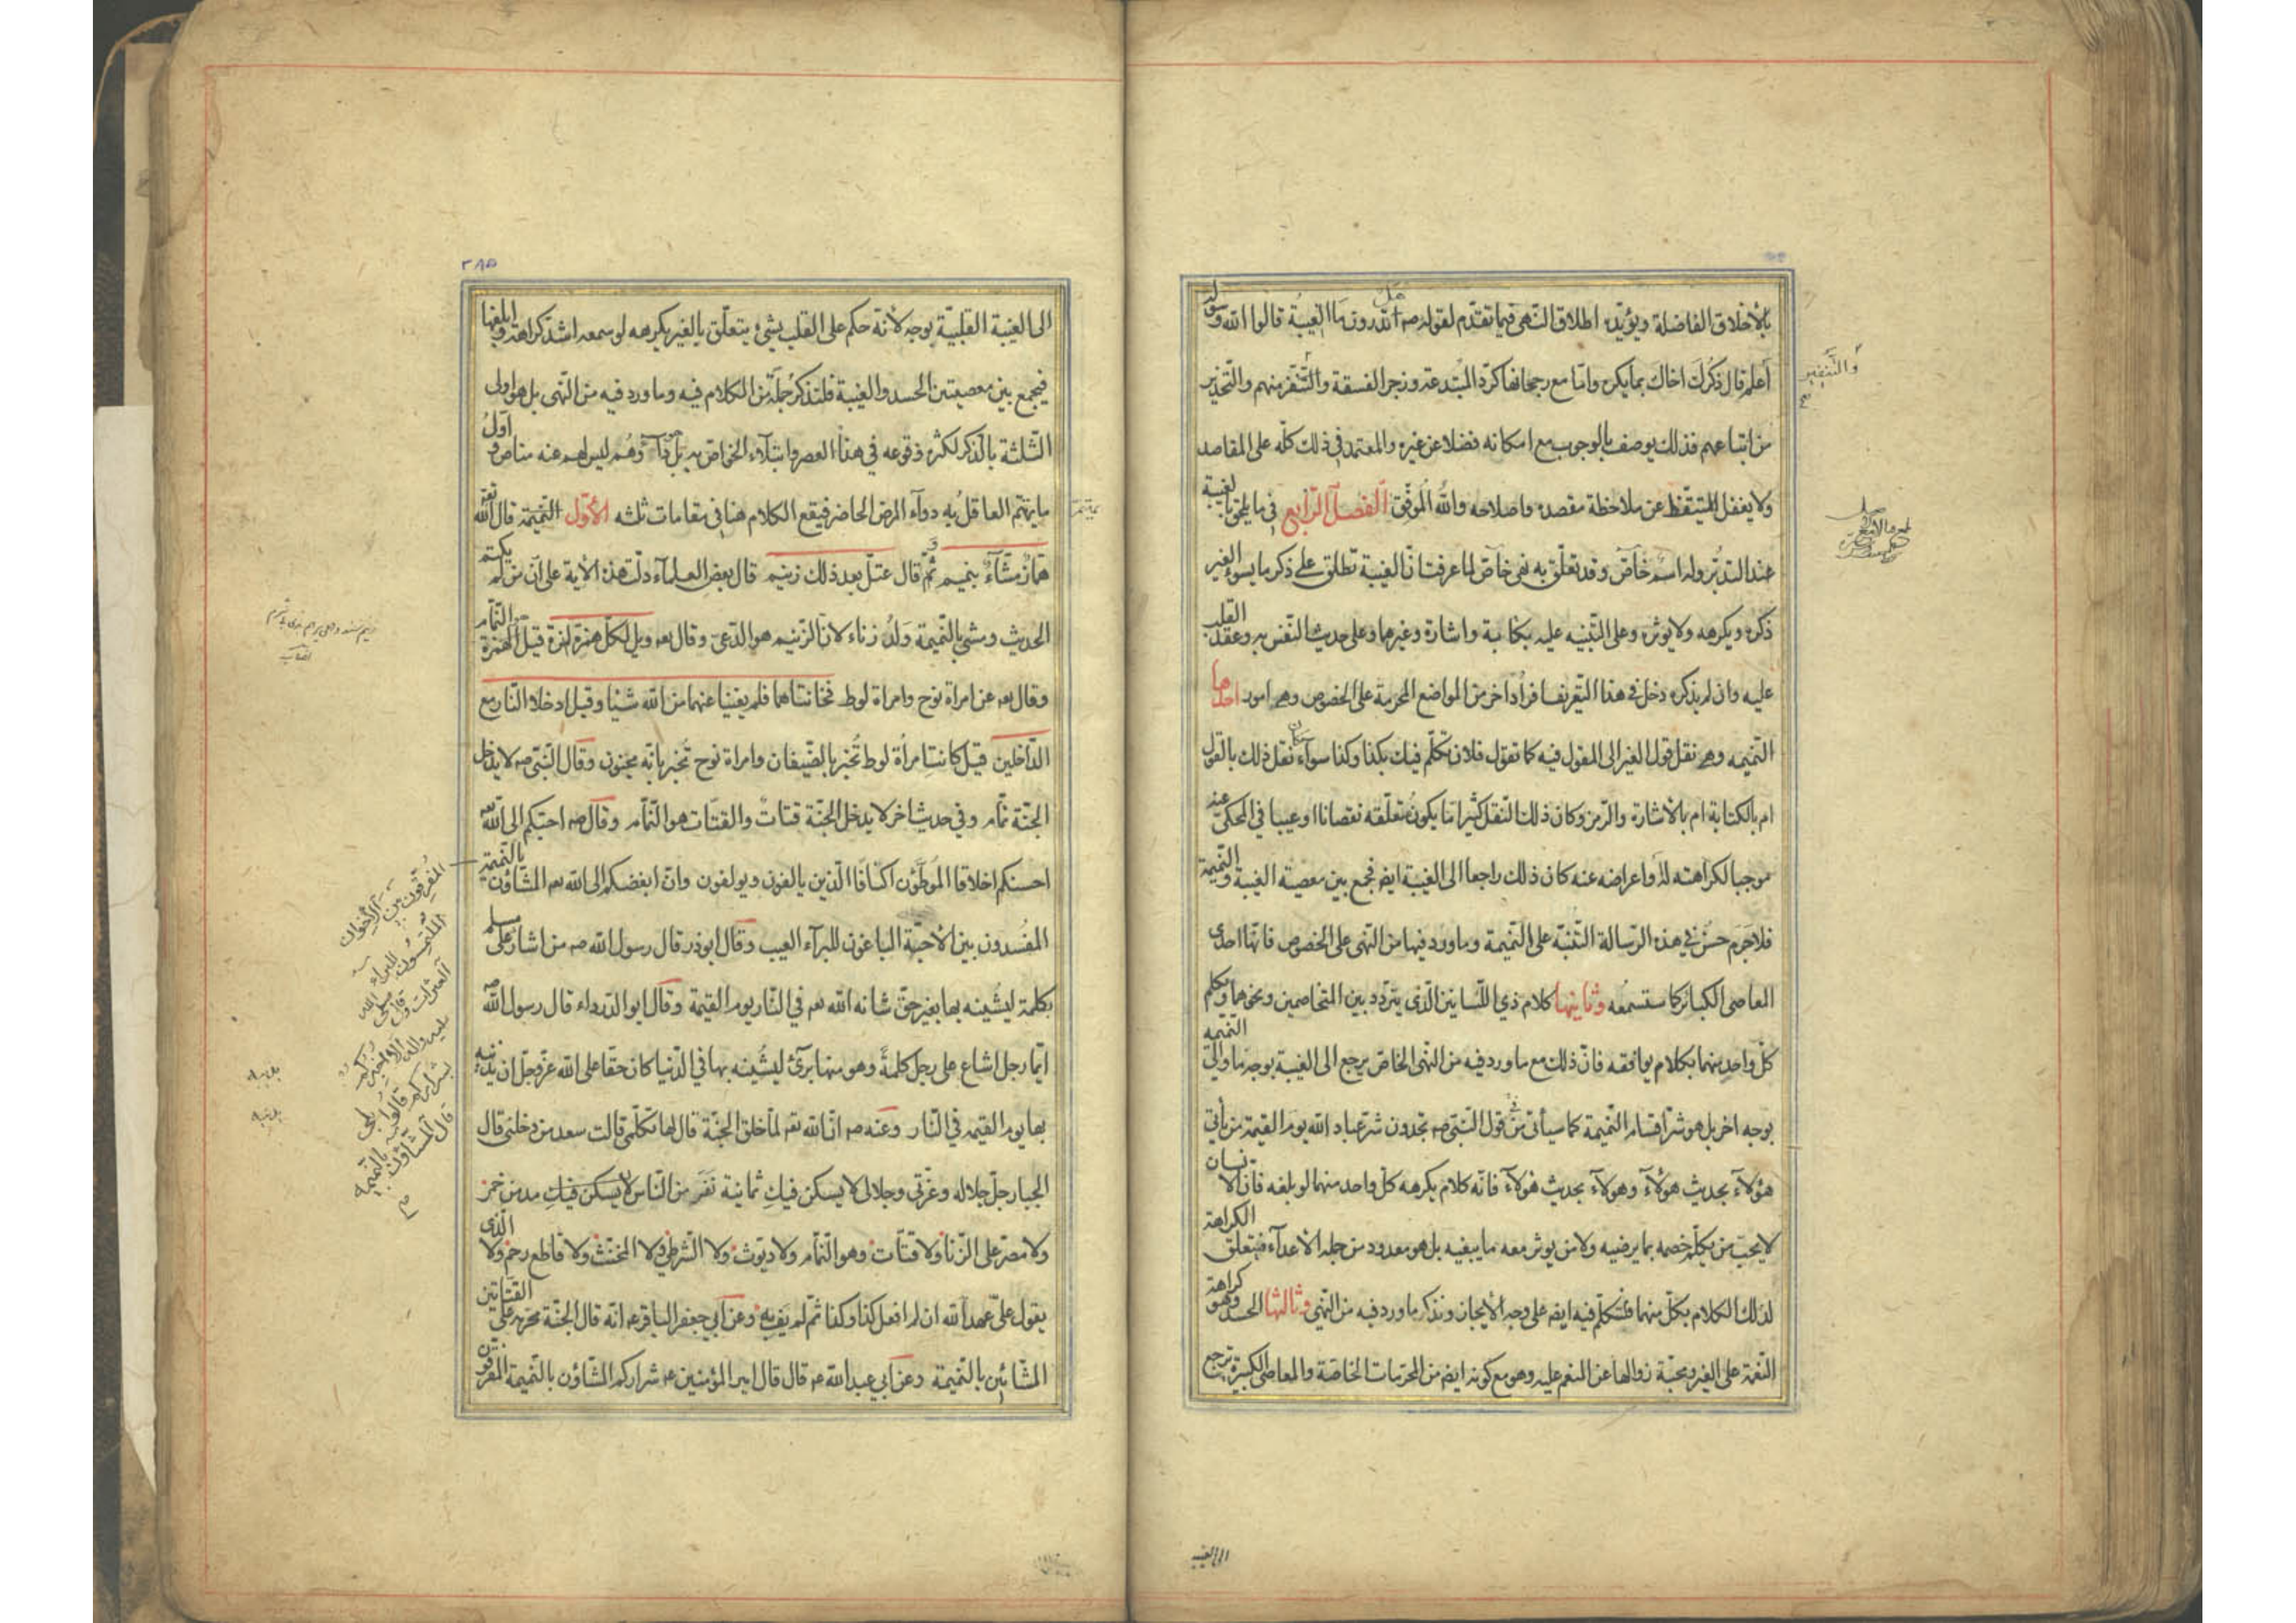 بالأخلاق الفاضلة ويؤيّده اطلاق النهى فيما تقدّم لقوله صه هل اتدرون ما الغيبة قالوا الله ورسوله
أعلم قال ذكرك اخاك بما يكره وامّا مع رجحانها كردّ المبتدعة وزجر الفسقة والتنفر منهم والتحذير
من اتباعهم فذلك يوصف بالوجوب مع امكانه فضلا عن غيره والمعتمد فى ذلك كلّه على المقاصد
ولا يغفل المتيقّظ عن ملاحظة مقصده واصلاحه والله الموفّق الفصل الرّابع فى ما يلحق بالغيبة
عند التدبّر وله اسم خاصّ وقد تعلّق به نهى خاصّ لما عرفت انّ الغيبة تطلق على ذكر ما يسوء الغير
ذكره ويكرهه ولا يوثره وعلى التنبيه عليه بكتابة واشارة وغيرها وعلى حديث النّفس به وعقد القلب
عليه وان لم يذكره دخل فى هذا التعريف افراد اخر من المواضع المحرمة على الخصوص وهى امور احدها
النميمه وهى نقل قول الغير الى المقول فيه كما تقول فلان تكلّم فيك بكذا وكذا سوآء كان نقل ذلك بالقول
ام بالكتابة ام بالاشارة والرّمز وكان ذلك النقل كثيرا ما يكون تعلّقه نقصانا او عيبا فى المحكىّ عنه
موجبا لكراهته له واعراضه عنه كان ذلك راجعا الى الغيبة ايضم فجمع بين معصيته الغيبة والنميمة
فلا جرم حسن فى هذه الرّسالة التّنبّه على النميمة وما ورد فيها من النهى على الخصوص فانّها احدى
المعاصى الكبائر كما ستسمعه وثانيها كلام ذي اللّسانين الّذى يتردّد بين المتخاصمين ونحوها ويكلم
كلّ واحد منهما بكلام يوافقه فانّ ذلك مع ما ورد فيه من النهى الخاصّ يرجع الى الغيبة بوجه ما والى النميمه
بوجه اخر بل هو شرّ اقسام النميمة كما سيأتى فى من قول النبّى صه تجدون شرّ عباد الله يوم القيمة من يأتى
هؤلآء بحديث هؤلآء وهولآء بحديث هولآء فانّه كلام يكرهه كلّ واحد منهما لو بلغه فانّ الانسان
لا يحبّ من يكلّم خصمه بما يرضيه ولا من يوثر معه ما يبغيه بل هو معدود من جملة الأعدآء فيتعلّق الكراهة
لذلك الكلام بكلّ منهما فنتكلّم فيه ايضم على وجه الأيجاز ونذكر ما ورد فيه من النهى وثالثها الحسد وهو كراهة
النّعمة على الغير ومحبّة زوالها عن المنعم عليه وهو مع كونه ايضم من المحرمات الخاصّة والمعاصى الكبيرة يرجع
والتنفير
الى الغيبة
٢٨٥
الى الغيبة القلبيّة بوجه لأنّه حكم على القلب بشئ يتعلّق بالغير يكرهه لو سمعه اشدّ كراهة وابلغها
فيجمع بين معصيتين الحسد والغيبة فلنذكر جملة من الكلام فيه وما ورد فيه من النّهى بل هو اولى
الثلثة بالذكر لكثرة وقوعه فى هذا العصر وابتلآء الخواصّ به وهم ليس لهم عنه مناص واوّل
ما يهتم العاقل به دوآء المرض الحاضر فيقع الكلام هنا فى مقامات ثلثه الأوّل النّميمة قال الله تعه
همّاز مشّآء بنميم ثمّ قال عتلّ بعد ذلك زنيم قال بعض العلمآء دلّت هذه الأية على انّ من لم يكتم
الحديث ومشى بالنّميمة ولد زناء لانّ الزنيم هو الدّعىّ وقال تعه ويل لكلّ همزة لمزة قيل الهمزة النمّام
وقال تعه عن امراة نوح وامراة لوط فخانتاهما فلم يغنيا عنهما من الله شيئا وقيل ادخلا النار مع
الدّاخلين قيل كانت امرأة لوط تخبر بالضّيفان وامراة نوح تخبر بانّه مجنون وقال النّبى صه لا يدخل
الجنّة نمّام وفى حديث اخر لا يدخل الجنّة قتات والقتات هو النّمام وقال صه احبّكم الى الله تعه
احسنكم اخلاقا الموطّؤن اكنافا الّذين يالفون ويولفون وانّ ابغضكم الى الله تعه المشّاؤن بالنميمة
المفسدون بين الأحبّة الباغون للبرآء العيب وقال ابوذر قال رسول الله صه من اشار على مسلم
بكلمة ليشينه بها بغير حقّ شانه الله تعه فى النّار يوم القيمة وقال ابو الدّرداء قال رسول الله صه
ايّما رجل اشاع على رجل كلمة وهو منها برئ ليشينه بها فى الدّنيا كان حقّا على الله عزّ وجلّ ان يدينه
بها يوم القيمه فى النّار وعنه صه انّ الله تعه لمّا خلق الجنّة قال لها تكلّمى قالت سعد من دخلنى قال
الجبار جلّ جلاله وعزّتى وجلالى لا يسكن فيك ثمانية نفر من النّاس لا يسكن فيك مدمن خمر
ولا مصرّ على الزّنا ولا قتّات وهو النمّام ولا ديّوث ولا الشرطىّ ولا المخنّث ولا قاطع رحم ولا الّذى
يقول علىّ عهد الله ان لم افعل كذا وكذا ثمّ لم يف به وعن أبى جعفر الباقر عه انّه قال الجنّة محرّمة على القتّاتين
المشّائين بالنّميمة وعن ابى عبد الله عه قال قال امير المؤمنين عه شراركم المشّاؤن بالنّميمة المفرّقون
المفرقون بين الاخوان
الملتمسون للبراء
قال المشاؤن بالنميمة